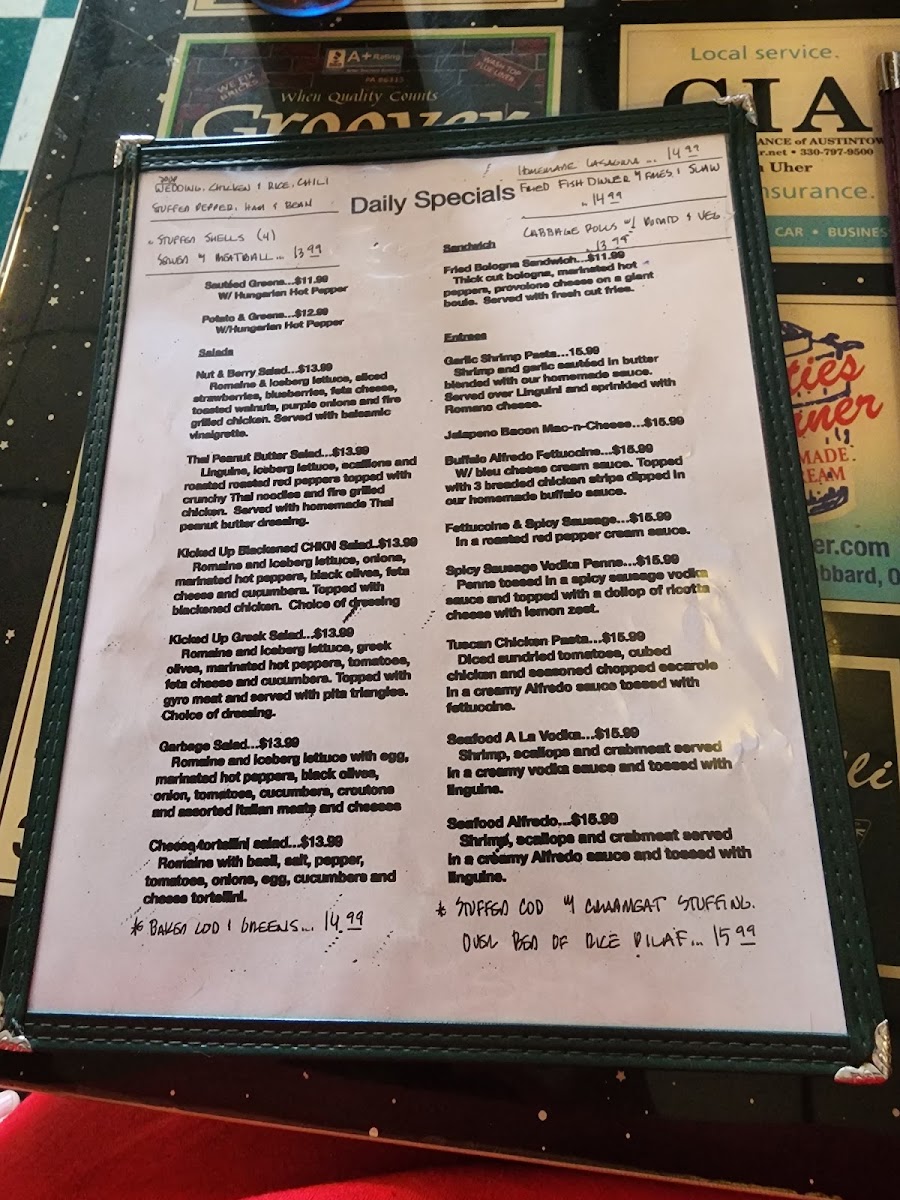 A+ Rating
WE FIX
BRICKS
WASH TOP
FLUE LINER
When Quality Counts
Groover
Local service.
GIA
ANCE of AUSTINTOW
r.net • 330-797-9500
Uher
nsurance.
CAR • BUSINES
ties
iner
MADE
EAM
er.com
bbard, O
WEDDING, CHICKEN & RICE, CHILI
STUFFED PEPPER, HAM & BEAN
STUFFED SHELLS (4)
SERVED W/ MEATBALL... 13.99
Daily Specials
HOMEMADE LASAGNA ... 14.99
FRIED FISH DINNER W/ FRIES & SLAW
14.99
CABBAGE ROLLS W/ POTATO & VEG
13.99
Sautéed Greens...$11.99
W/ Hungarian Hot Pepper
Potato & Greens...$12.99
W/Hungarian Hot Pepper
Salads
Nut & Berry Salad...$13.99
Romaine & Iceberg lettuce, sliced
strawberries, blueberries, feta cheese,
toasted walnuts, purple onions and fire
grilled chicken. Served with balsamic
vinaigrette.
Thai Peanut Butter Salad...$13.99
Linguine, iceberg lettuce, scallions and
roasted roasted red peppers topped with
crunchy Thai noodles and fire grilled
chicken. Served with homemade Thai
peanut butter dressing.
Kicked Up Blackened CHKN Salad..$13.99
Romaine and iceberg lettuce, onions,
marinated hot peppers, black olives, feta
cheese and cucumbers. Topped with
blackened chicken. Choice of dressing
Kicked Up Greek Salad...$13.99
Romaine and iceberg lettuce, greek
olives, marinated hot peppers, tomatoes,
feta cheese and cucumbers. Topped with
gyro meat and served with pita triangles.
Choice of dressing.
Garbage Salad...$13.99
Romaine and iceberg lettuce with egg,
marinated hot peppers, black olives,
onion, tomatoes, cucumbers, croutons
and assorted Italian meats and cheeses
Cheese tortellini salad...$13.99
Romaine with basil, salt, pepper,
tomatoes, onions, egg, cucumbers and
cheese tortellini.
* BAKED COD & GREENS... 14.99
Sandwich
Fried Bologna Sandwich...$11.99
Thick cut bologna, marinated hot
peppers, provolone cheese on a giant
boule. Served with fresh cut fries.
Entrees
Garlic Shrimp Pasta...15.99
Shrimp and garlic sautéed in butter
blended with our homemade sauce.
Served over Linguini and sprinkled with
Romano cheese.
Jalapeno Bacon Mac-n-Cheese...$15.99
Buffalo Alfredo Fettuccine...$15.99
W/ bleu cheese cream sauce. Topped
with 3 breaded chicken strips dipped in
our homemade buffalo sauce.
Fettuccine & Spicy Sausage...$15.99
In a roasted red pepper cream sauce.
Spicy Sausage Vodka Penne...$15.99
Penne tossed in a spicy sausage vodka
sauce and topped with a dollop of ricotta
cheese with lemon zest.
Tuscan Chicken Pasta...$15.99
Diced sundried tomatoes, cubed
chicken and seasoned chopped escarole
in a creamy Alfredo sauce tossed with
fettuccine.
Seafood A La Vodka...$15.99
Shrimp, scallops and crabmeat served
in a creamy vodka sauce and tossed with
linguine.
Seafood Alfredo...$15.99
Shrimp, scallops and crabmeat served
in a creamy Alfredo sauce and tossed with
linguine.
* STUFFED COD W/ CRABMEAT STUFFING.
OVER BED OF RICE PILAF... 15.99